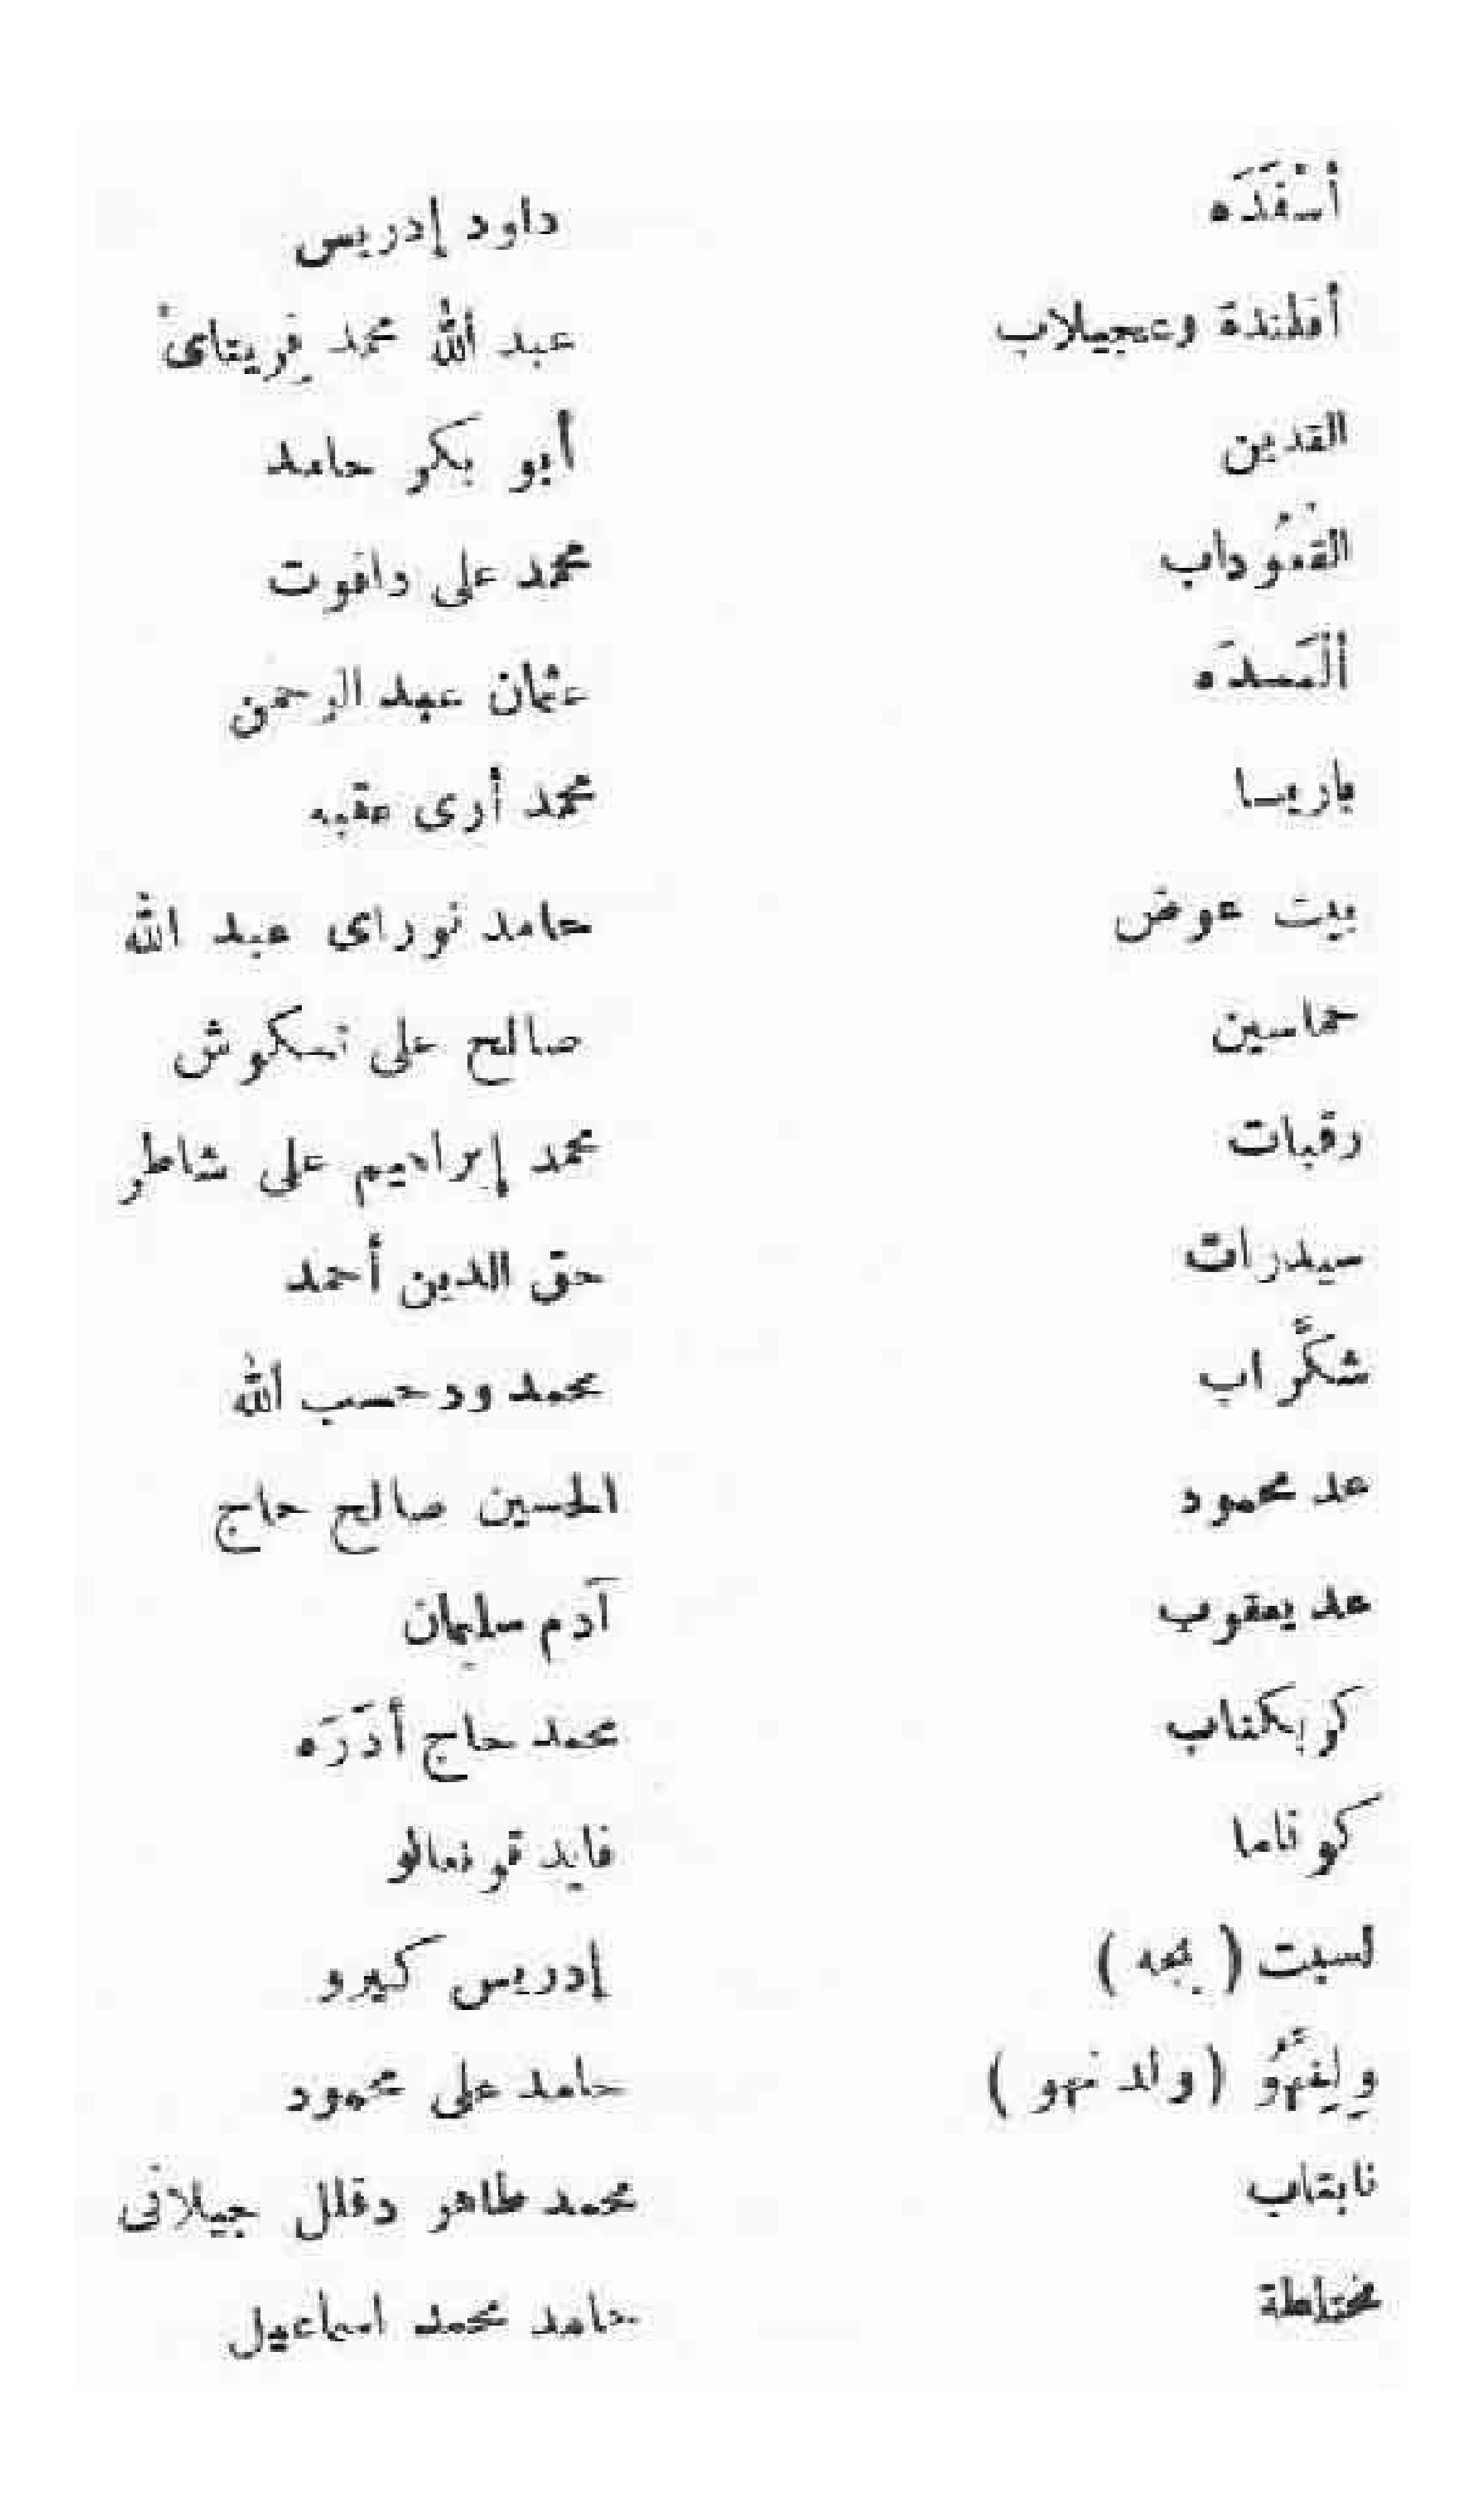 أسْفَدَه داود إدريس
أفلندة وعجيلاب عبد الله محمد فِريتاىْ
القدين أبو بكر حامد
القعُوداب محمد على دافوت
ألْمَسدَه عثمان عبد الرحمن
باريسا محمد أرى عقبه
بيت عوض حامد نوراى عبد الله
حماسين صالح على تسكوش
رقبات محمد إبراهيم على شاطر
سيدرات حق الدين أحمد
شكَّراب محمد ود حسب الله
عد محمود الحسين صالح حاج
عد يعقوب آدم سليمان
كوبكناب محمد حاج أدَرَه
كوناما فايد قونعالو
لسبت ( بجه ) إدريس كيرو
( ولد نهو ) حامد على محمود
نابتاب محمد طاهر دقلل جيلانى
مختلطة حامد محمد اسماعيل